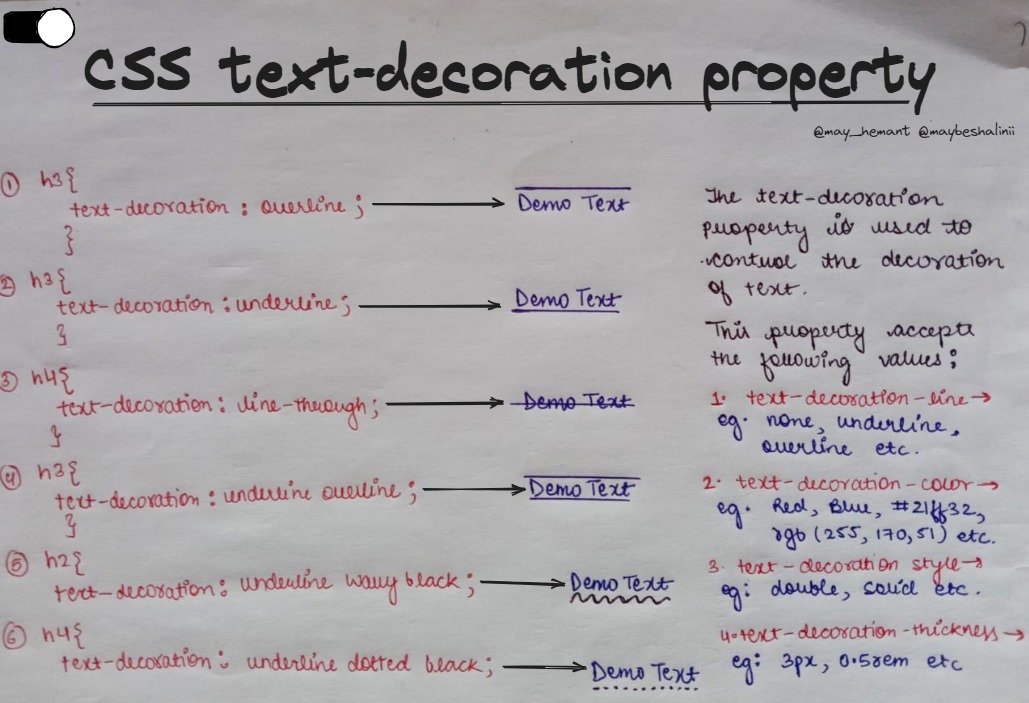 CSS text-decoration property
@may_hemant @maybeshalinii
① h3{
text-decoration : overline ;
}
Demo Text
② h3{
text-decoration : underline ;
}
Demo Text
③ h4{
text-decoration : line-through ;
}
Demo Text
④ h3{
text-decoration : underline overline ;
}
Demo Text
⑤ h2{
text-decoration : underline wavy black ;
Demo Text
⑥ h4{
text-decoration : underline dotted black ;
Demo Text
The text-decoration
property is used to
control the decoration
of text.
This property accepts
the following values :
1. text-decoration-line →
eg. none, underline,
overline etc.
2. text-decoration-color →
eg. Red, Blue, #21ff32,
rgb (255, 170, 51) etc.
3. text-decoration style →
eg: double, solid etc.
4. text-decoration-thickness →
eg: 3px, 0.5rem etc